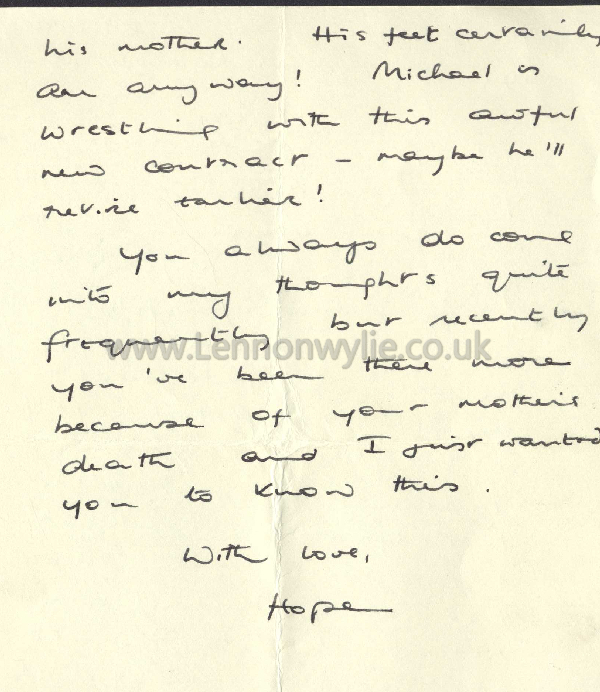 his mother. His feet certainly
are anyway! Michael is
wrestling with this awful
new contract - maybe he'll
earlier!
You always do come
into my thoughts quite
frequently but recently
www.Lennonwylie.co.uk
you've been there more
because of your mother's
death and I just wanted
you to know this.
With love,
Hope